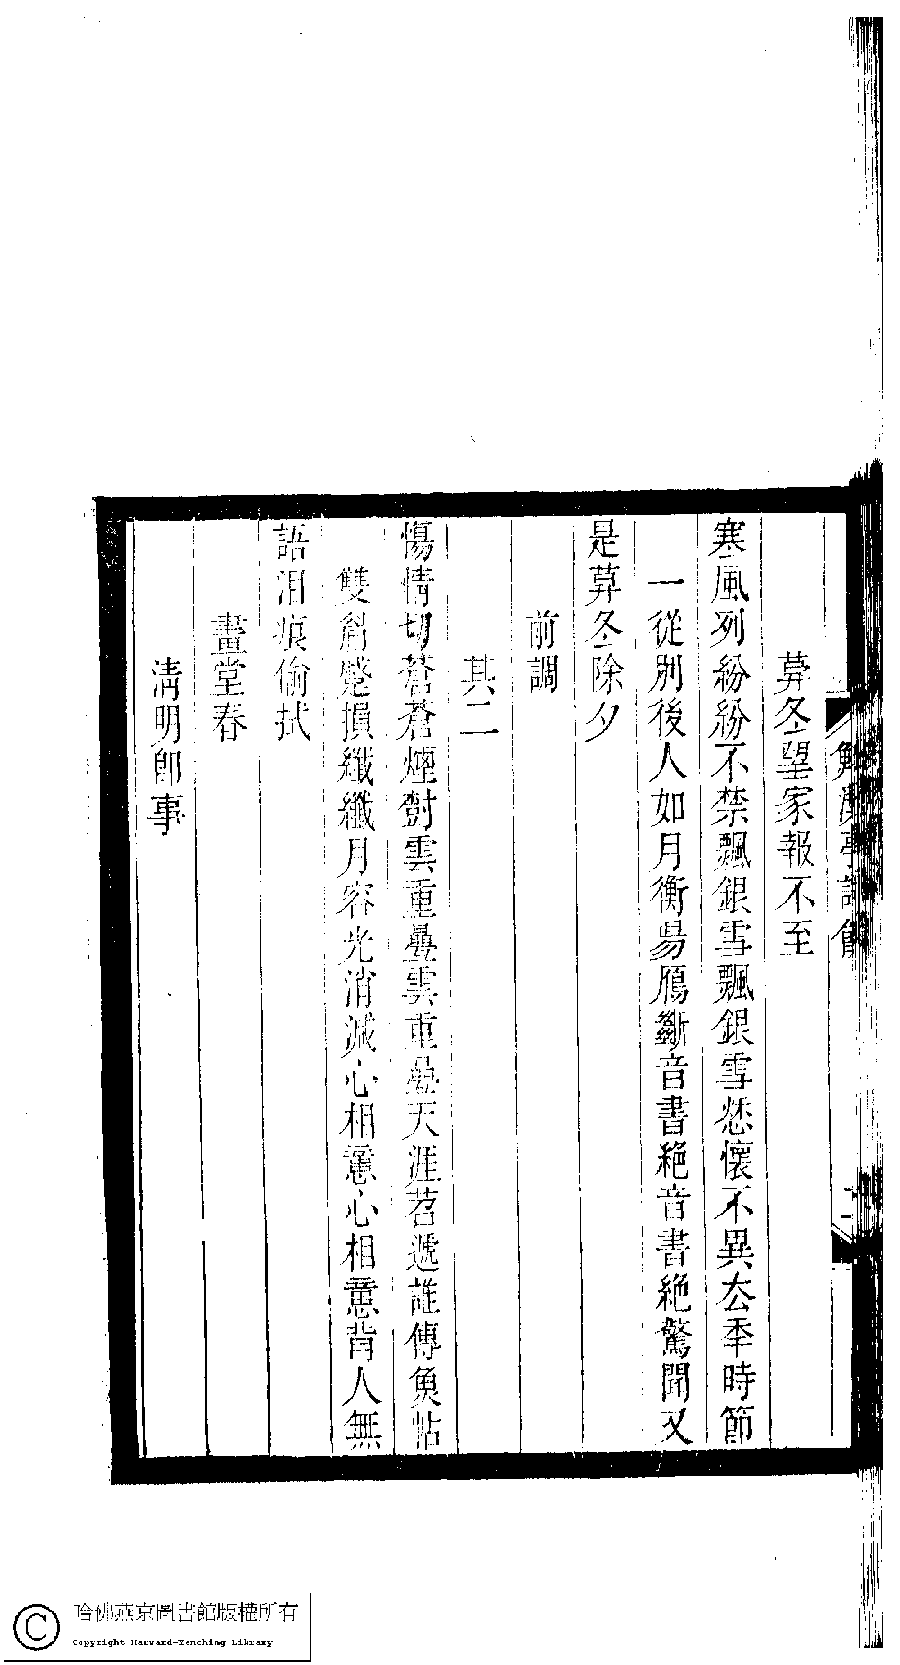 莫冬朢家報不至
寒風列紛紛不禁飄銀雪飄銀雪愁懷不異厺秊時節
一從別後人如月衡昜鴈斷音書絕音書絕驚聞又
是莫冬除夕
前調
其二
傷情切蒼蒼煙樹雲重疊雲重疊天涯苕遞誰傳魚帖
雙蛾蹙損纖纖月容光消減心相憶心相憶背人無
語泪痕偷拭
畫堂春
淸明卽事
哈佛燕京圖書館版權所有
Copyright Harvard-Yenching Library